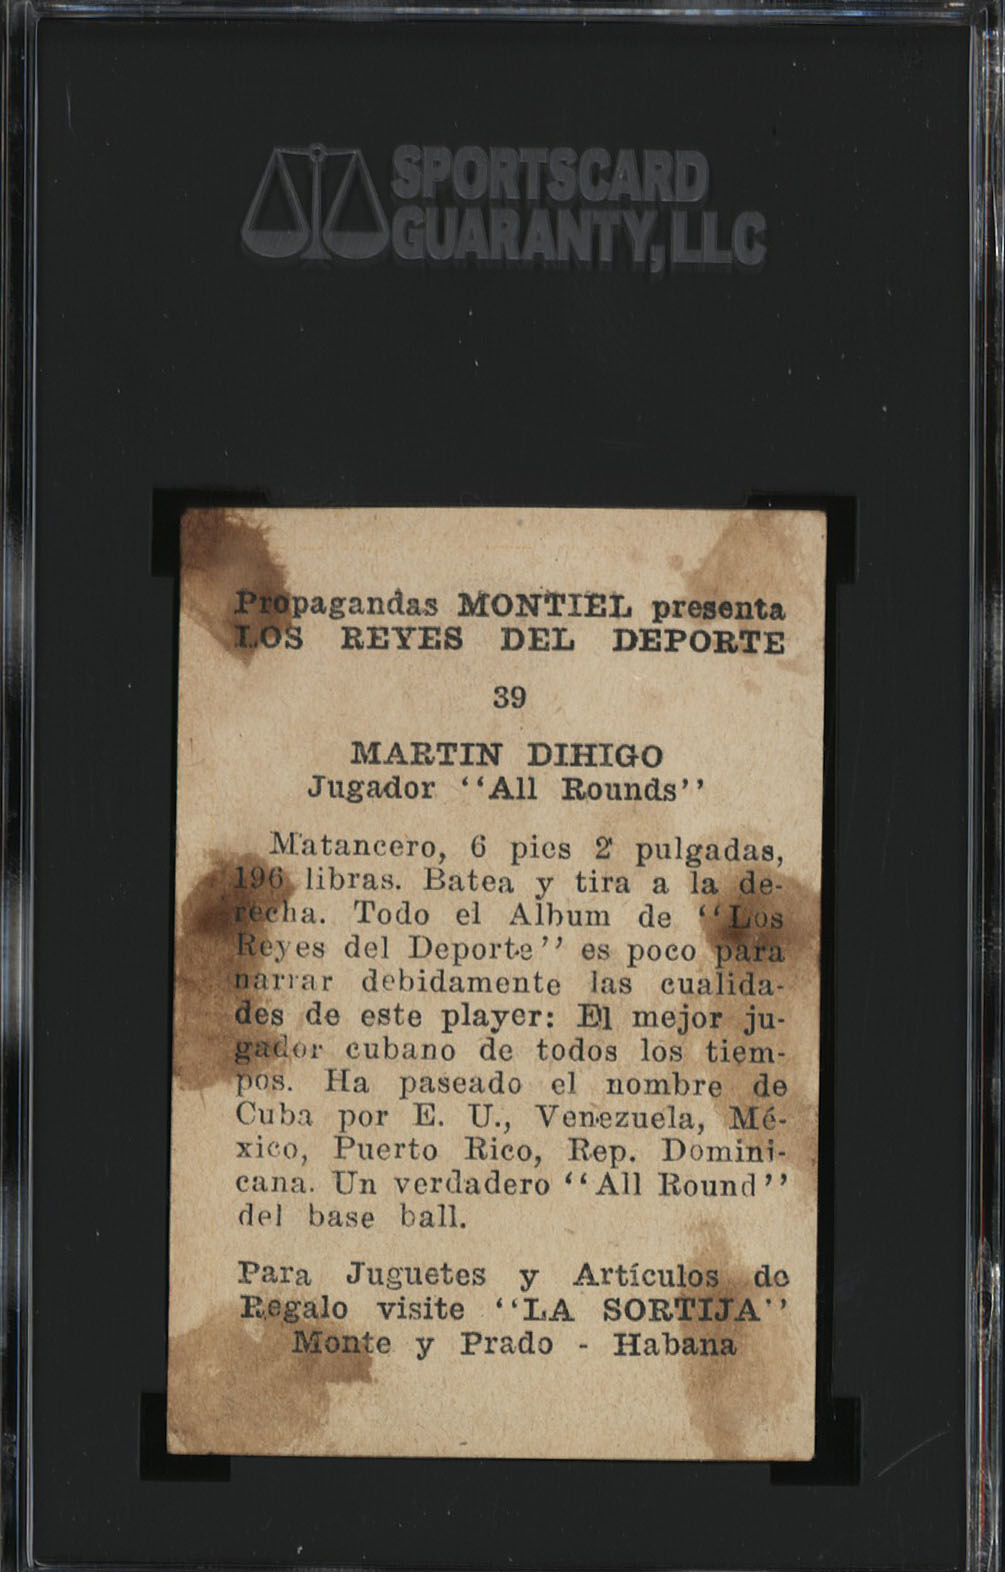 SPORTSCARD
GUARANTY, LLC
Propagandas MONTIEL presenta
LOS REYES DEL DEPORTE
39
MARTIN DIHIGO
Jugador ‘‘All Rounds’’
Matancero, 6 pies 2 pulgadas,
196 libras. Batea y tira a la de-
recha. Todo el Album de ‘‘Los
Reyes del Deporte’’ es poco para
narrar debidamente las cualida-
des de este player: El mejor ju-
gador cubano de todos los tiem-
pos. Ha paseado el nombre de
Cuba por E. U., Venezuela, Mé-
xico, Puerto Rico, Rep. Domini-
cana. Un verdadero ‘‘All Round’’
del base ball.
Para Juguetes y Artículos de
Regalo visite ‘‘LA SORTIJA’’
Monte y Prado - Habana